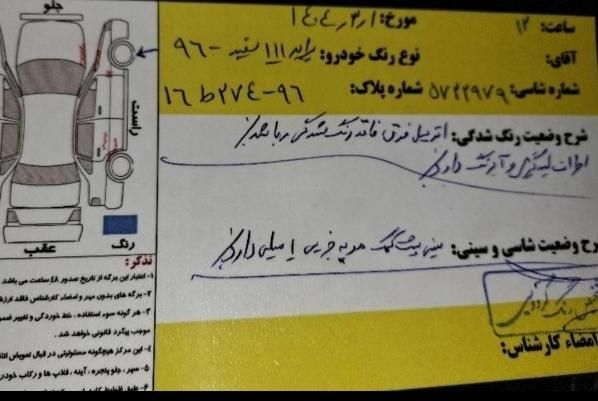 جلو
راست
عقب
رنگ
ساعت: ۱۲ مورخ: ۱۴۰۴/۳/۱
آقای: نوع رنگ خودرو: پراید ۱۱۱ سفید - ۹۶
شماره شاسی: ۵۷۲۲۹۷۹ شماره پلاک: ۹۶-۲۷۴ ط ۱۶
شرح وضعیت رنگ شدگی: اتومبیل فوق فاقد رنگ شدگی میباشد
اطراف لیسگیری و آبرنگ دارد
رح وضعیت شاسی و سینی: سینی پشت کمک ضربه جزیی دارد
امضاء کارشناس:
تذکر:
۱- اعتبار این برگه از تاریخ صدور ۴۸ ساعت می باشد
۲- برگه های بدون مهر و امضاء کارشناس فاقد ارزش
۳- هر گونه سوء استفاده ، خط خوردگی و تغییر
موجب پیگرد قانونی خواهد شد .
۴- این مرکز هیچگونه مسئولیتی در قبال تعویض
۵- سپر ، جلو پنجره ، آینه ، قلاپ ها و رکاب